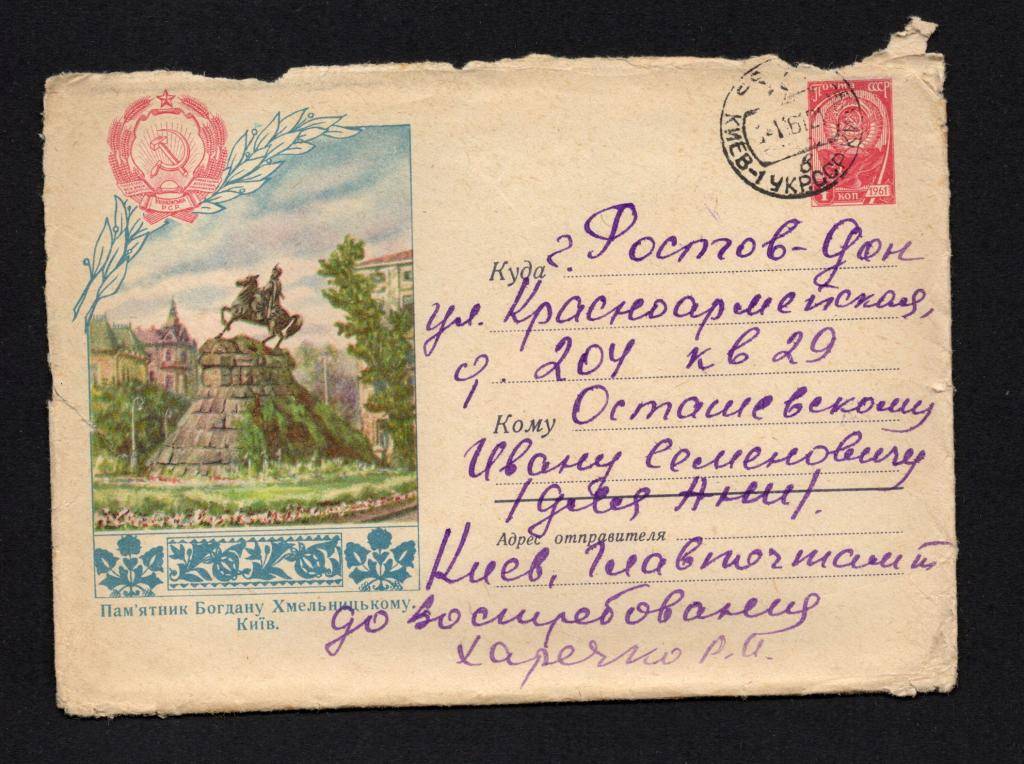 УКРАЇНСЬКА
РСР
ПОЧТА СССР
КОП 1961
КИЕВ-1 УКР.ССР
б
Куда г. Ростов-Дон
ул. Красноармейская,
д. 204 кв 29
Кому Осташевскому
Ивану Семеновичу
/для Ани/.
Адрес отправителя
Киев, Главпочтамт
до востребования
Харечко Р.П.
Пам'ятник Богдану Хмельницькому.
Київ.